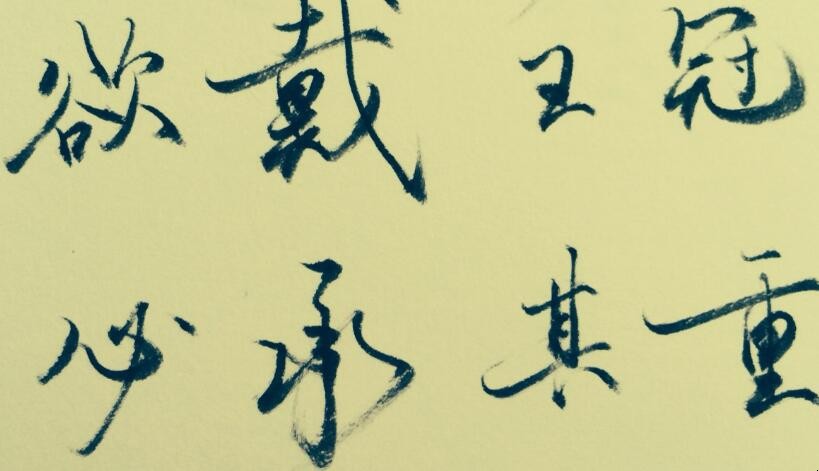 欲戴王冠
必承其重